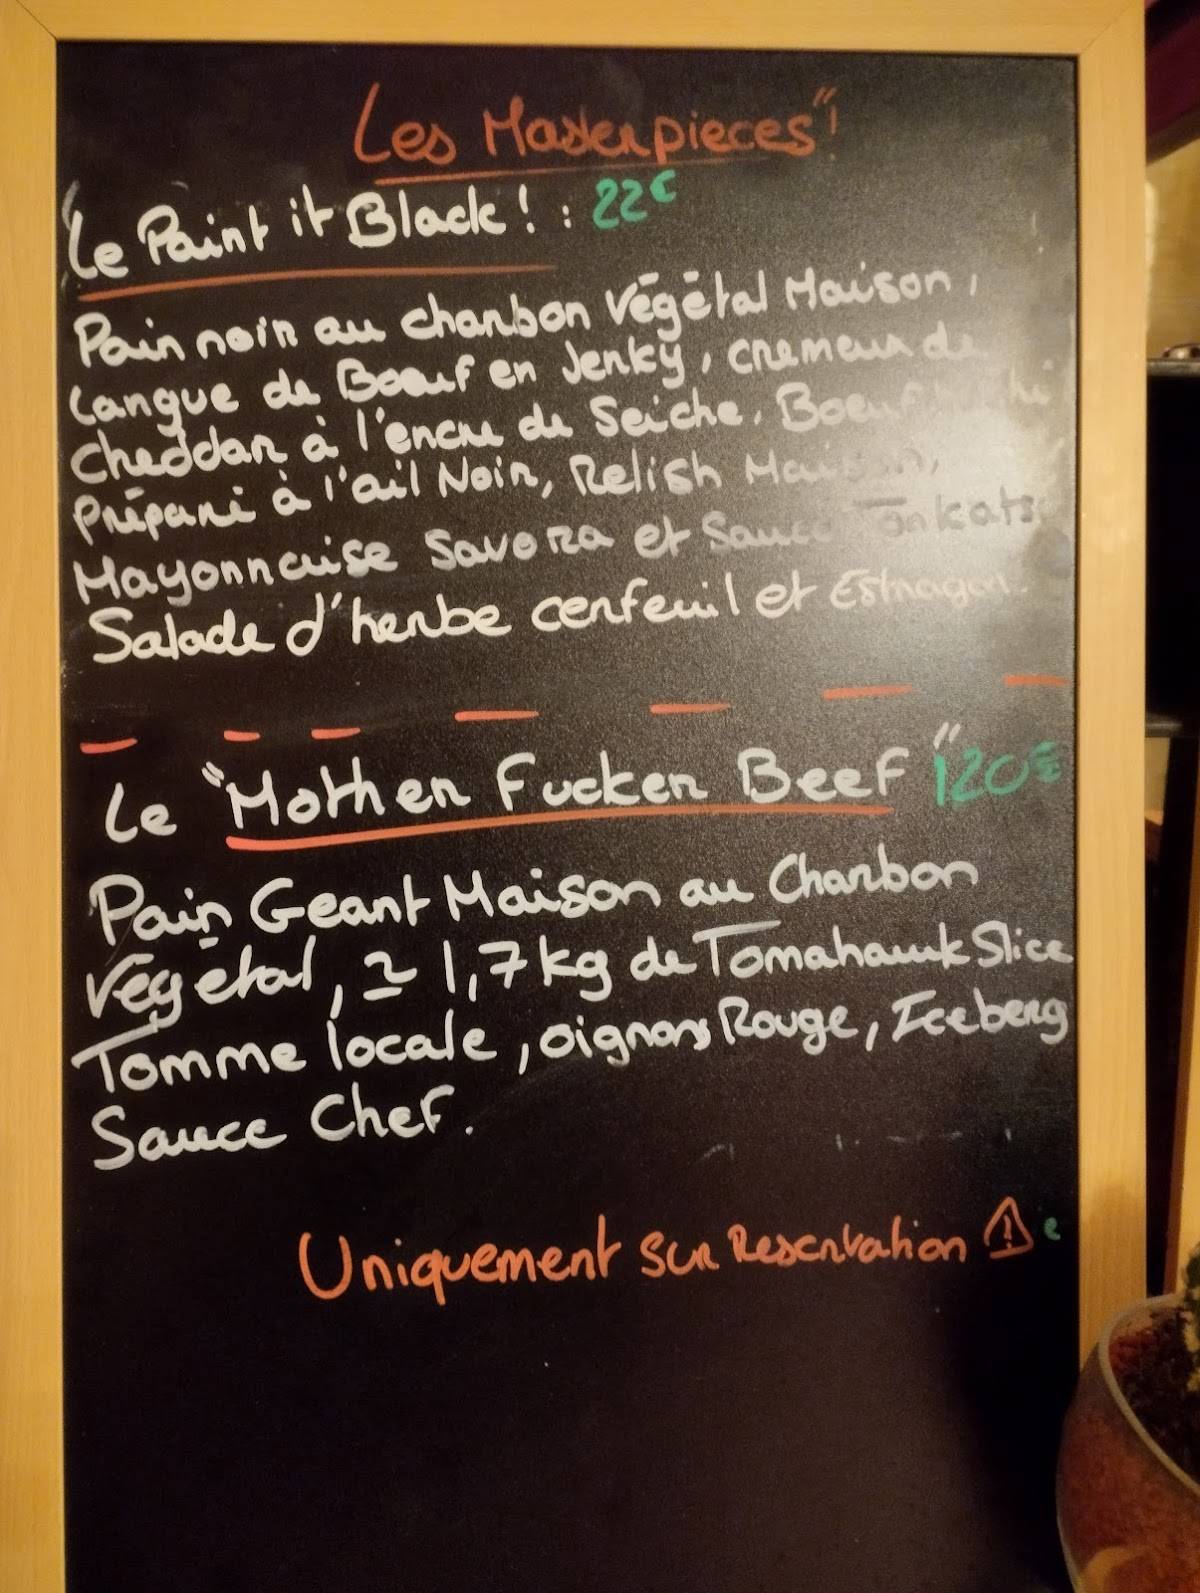 Les Masterpieces"!
"Le Paint it Black! : 22€
Pain noir au charbon Végétal Maison,
Langue de Boeuf en Jerky, cremeux de
cheddar à l'encre de Seiche, Boeuf
Préparé à l'ail Noir, Relish Maison,
Mayonnaise Savora et Sauce Tonkatsu
Salade d'herbe cerfeuil et Estragon.
Le "Mother Fucker Beef" 120€
Pain Geant Maison au Charbon
Végétal, ≃ 1,7kg de Tomahawk Slice
Tomme locale, oignons Rouge, Iceberg
Sauce Chef.
Uniquement sur Reservation ⚠